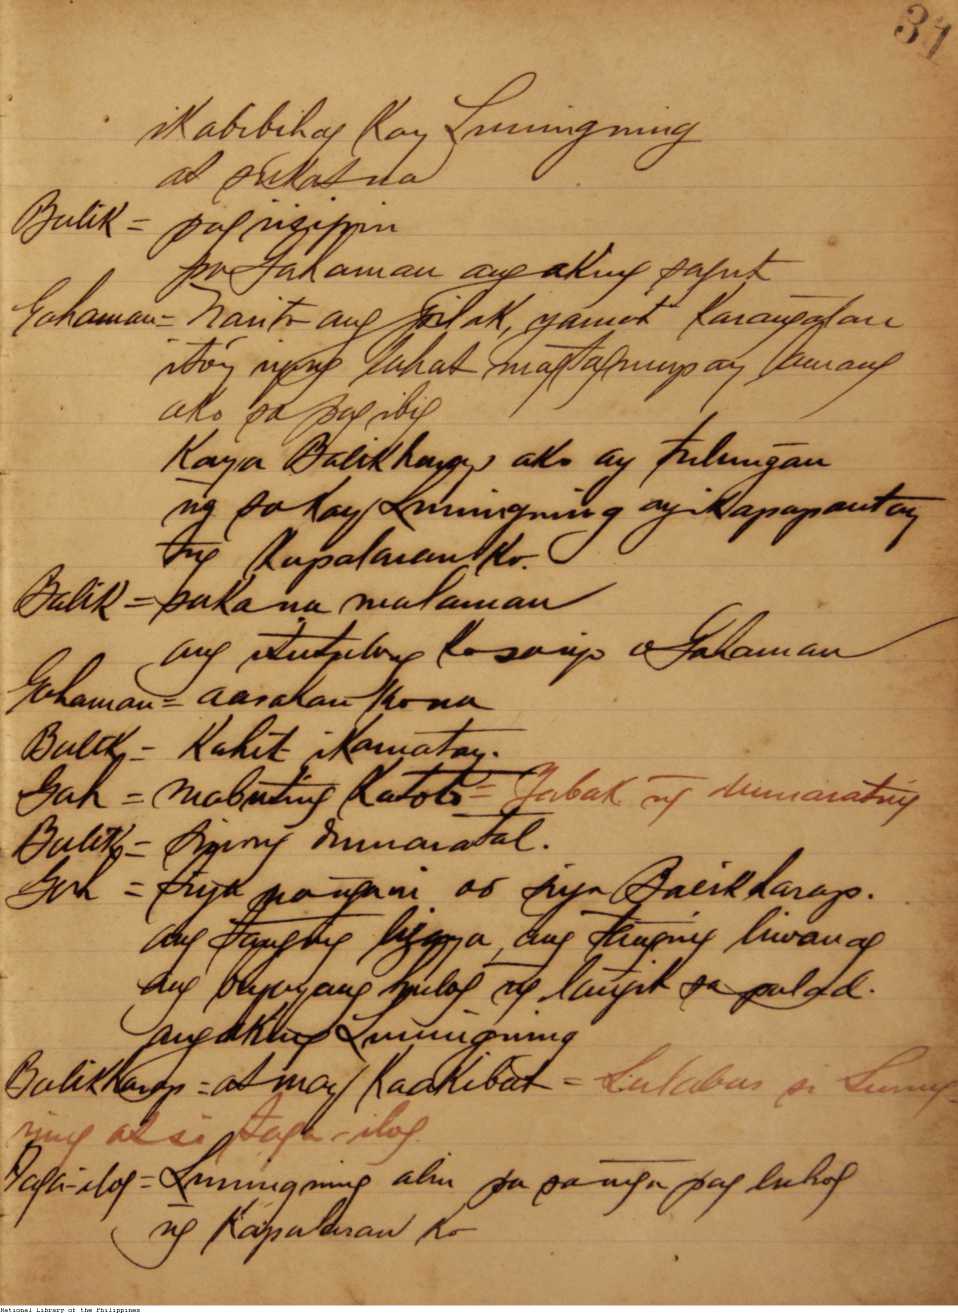 31
ikabibihag kay Luningning
at sukat na
Balik = pag isipin
po Gahaman ang aking sagut
Gahaman = Narito ang pilak, yamot karangalan
ito'y iyong lahat magtagumpay lamang
ako sa pag ibig
Kaya Balikharap ako ay tulungan
ng sa kay Luningning ay ikapapantay
ng kapalaran ko.
Balik = saka na malaman
ang itutulong ko sa iyo o Gahaman
Gahaman = aasahan ko na
Balik = Kahit ikamatay.
Gah = mabuting katoto = Yabak ng dumarating
Balik = sinong dumaratal.
Gah = siya nangani oo siya Balikharap.
ang tanging ligaya, ang tanging liwanag
ang hulog ng langit sa palad.
ang aking Luningning
Balikharap = at may kaakibat = Lulabas si Luning-
ning at si Taga-ilog
Taga-ilog = Luningning alin pa sa mga pag luhog
ng kapalaran ko
National Library of the Philippines